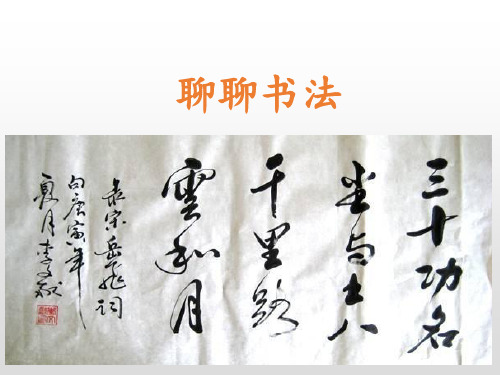 聊聊书法
三十功名
尘与土八
千里路
雲和月
录宋岳飞词
庚寅年
夏月李